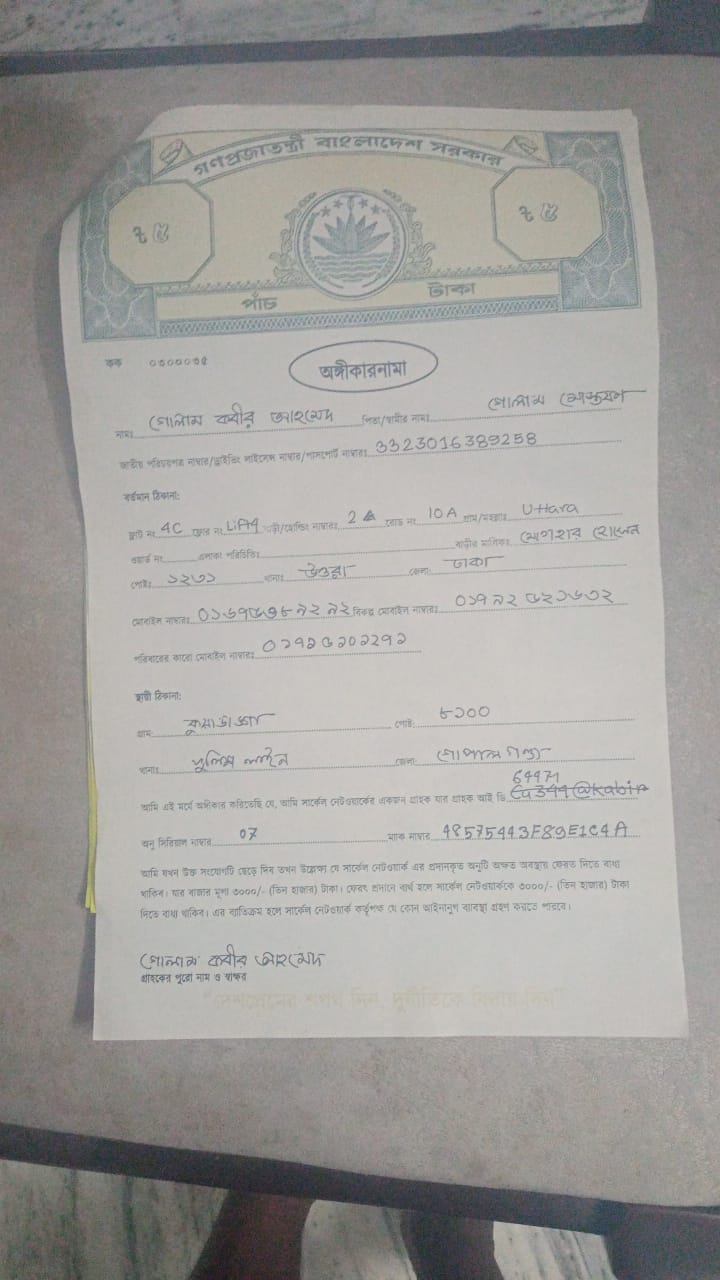 গণপ্রজাতন্ত্রী বাংলাদেশ সরকার
৳ ৫ ৳ ৫
পাঁচ টাকা
কক ৩৩০০৩৫
অঙ্গীকারনামা
নামঃ গোলাম কবীর আহমেদ পিতা/স্বামীর নামঃ গোলাম
জাতীয় পরিচয়পত্র নাম্বার/ড্রাইভিং লাইসেন্স নাম্বার/পাসপোর্ট নাম্বারঃ 3323016389258
বর্তমান ঠিকানা:
ফ্লাট নং 4C ফ্লোর নং Lift4 বাড়ী/হোল্ডিং নাম্বারঃ 2A রোড নং 10A গ্রাম/মহল্লাঃ Uttara
ওয়ার্ড নং এলাকা পরিচিতিঃ বাড়ীর মালিকঃ মোশারফ হোসেন
পোষ্টঃ ১২৩১ থানাঃ উত্তরা জেলা: ঢাকা
মোবাইল নাম্বারঃ বিকল্প মোবাইল নাম্বারঃ
পরিবারের কারো মোবাইল নাম্বারঃ
স্থায়ী ঠিকানা:
গ্রামঃ পোষ্ট: ৮১০০
থানাঃ পুলিশ লাইন জেলা: গোপালগঞ্জ
64471
আমি এই মর্মে অঙ্গীকার করিতেছি যে, আমি সার্কেল নেটওয়ার্কের একজন গ্রাহক যার গ্রাহক আই ডি
অনু সিরিয়াল নাম্বার 07 ম্যাক নাম্বার 48575443F89E1C4A
আমি যখন উক্ত সংযোগটি ছেড়ে দিব তখন উল্লেক্ষ্য যে সার্কেল নেটওয়ার্ক এর প্রদানকৃত অনুটি অক্ষত অবস্থায় ফেরত দিতে বাধ্য
থাকিব। যার বাজার মূল্য ৩০০০/- (তিন হাজার) টাকা। ফেরৎ প্রদানে ব্যর্থ হলে সার্কেল নেটওয়ার্ককে ৩০০০/- (তিন হাজার) টাকা
দিতে বাধ্য থাকিব। এর ব্যতিক্রম হলে সার্কেল নেটওয়ার্ক কর্তৃপক্ষ যে কোন আইনানুগ ব্যবস্থা গ্রহণ করতে পারবে।
গোলাম কবীর আহমেদ
গ্রাহকের পুরো নাম ও স্বাক্ষর
"দেশপ্রেমের শপথ নিন, দুর্নীতিকে বিদায় দিন"